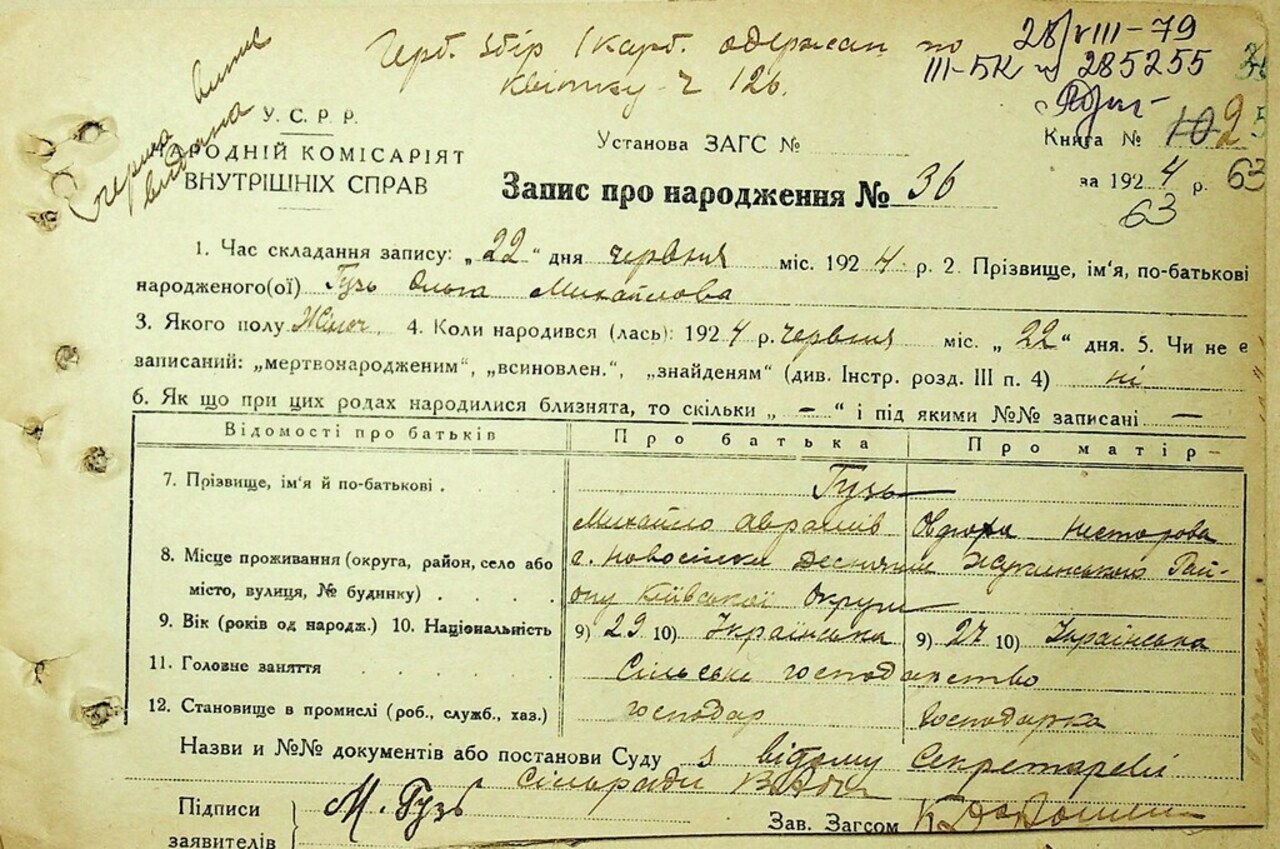 Герб. збір 1 карб. одержан по
квітку ч 126.
28/VIII-79
III-БК № 285255
перша виписка видана
У. С. Р. Р.
НАРОДНІЙ КОМІСАРІЯТ
ВНУТРІШНІХ СПРАВ
Установа ЗАГС №
Книга № 102
Запис про народження № 36
за 1924 р. 63
63
1. Час складання запису: „22“ дня червня міс. 1924 р. 2. Прізвище, ім'я, по-батькові
народженого(ої) Гузь Ольга Михайлова
3. Якого полу Жіноч. 4. Коли народився (лась): 1924 р. червня міс. „22“ дня. 5. Чи не є
записаний: „мертвонародженим“, „всиновлен.“, „знайденям“ (див. Інстр. розд. III п. 4) ні
6. Як що при цих родах народилися близнята, то скільки „ — “ і під якими №№ записані —
Відомості про батьків Про батька Про матір
7. Прізвище, ім'я й по-батькові . Гузь
Михайло Аврамів Овдоха Нисторова
8. Місце проживання (округа, район, село або с. Новосілки Десняни Жукинського Рай-
місто, вулиця, № будинку) ону Київської Округи
9. Вік (років од народж.) 10. Національність 9) 29 10) Українська 9) 27 10) Українська
11. Головне заняття Сільське господарство
12. Становище в промислі (роб., служб., хаз.) господар господарка
Назви и №№ документів або постанови Суду з відому Секретареві
сільради
Підписи
заявителів М. Гузь Зав. Загсом